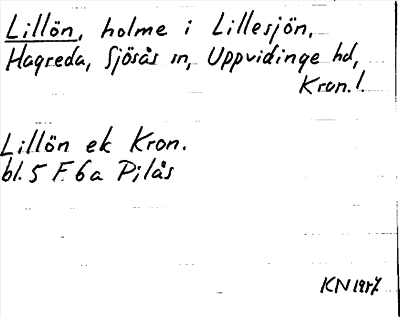 Lillön, holme i Lillesjön,
Hagreda, Sjösås sn, Uppvidinge hd,
Kron. l.
Lillön ek Kron.
bl. 5 F. 6a Pilås
KN